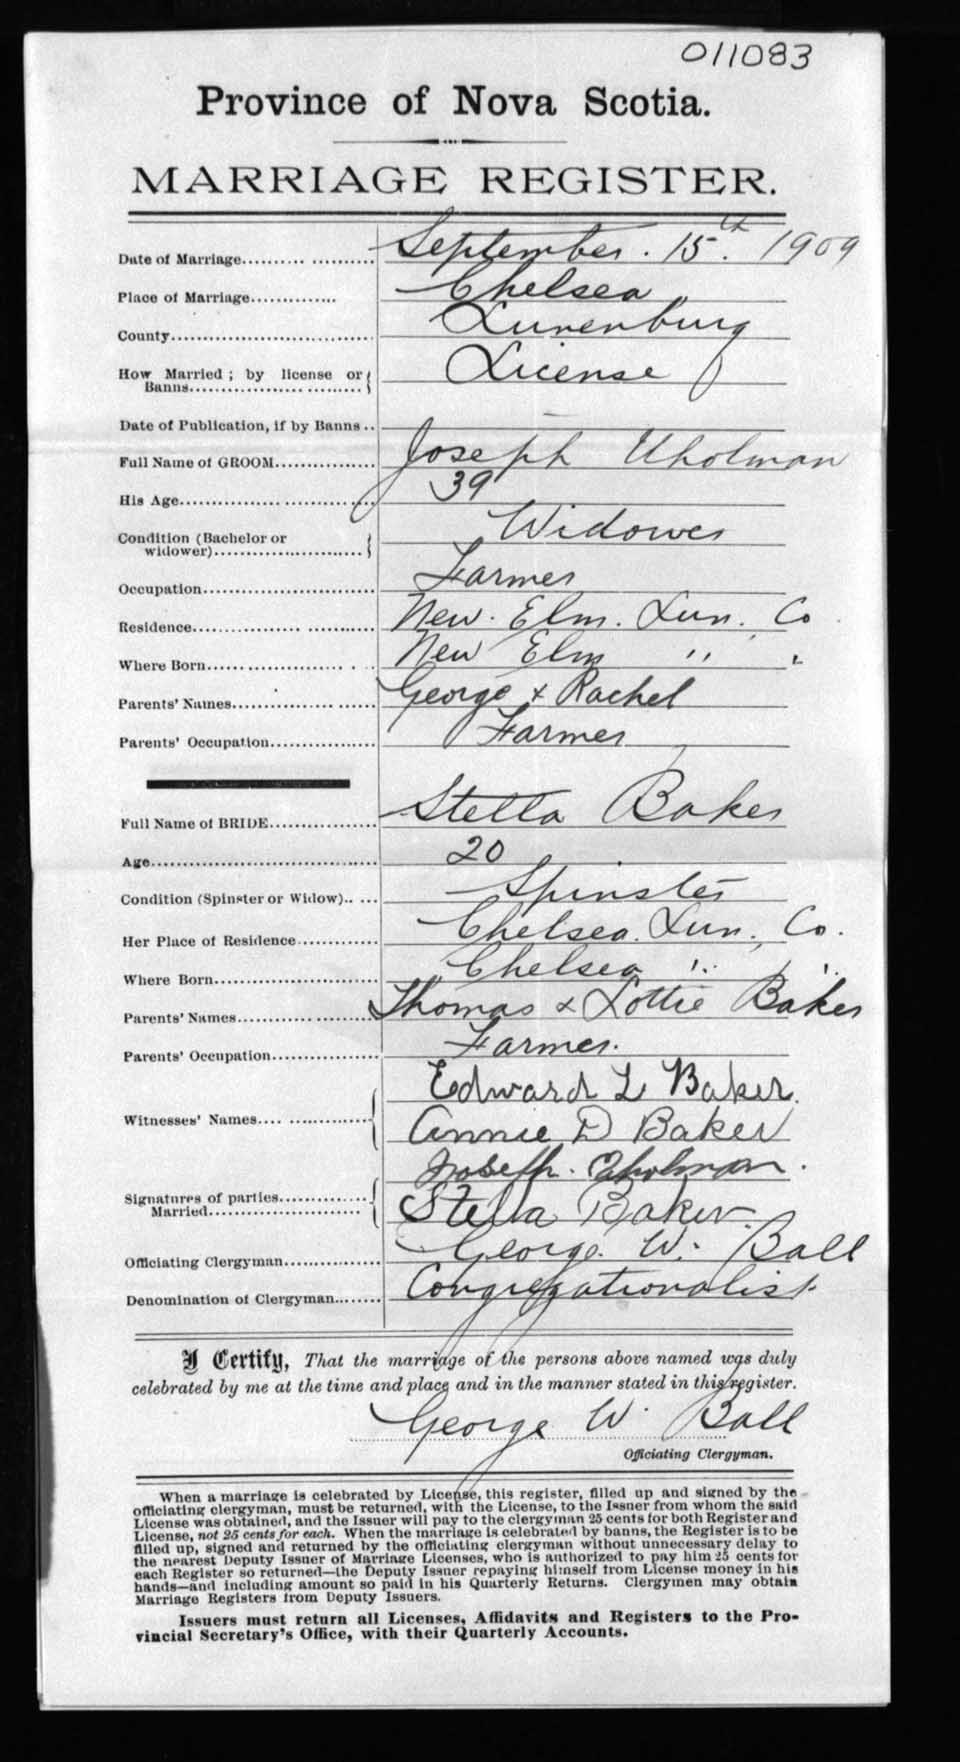 011083
Province of Nova Scotia.
MARRIAGE REGISTER.
Date of Marriage.................... September. 15th. 1909
Place of Marriage.............. Chelsea
County................................ Lunenburg
How Married; by license or
Banns................................ License
Date of Publication, if by Banns ..
Full Name of GROOM................ Joseph Uholman
His Age................................ 39
Condition (Bachelor or
widower)........................... Widower
Occupation........................... Farmer
Residence............................. New. Elm. Lun. Co
Where Born........................... New Elm " "
Parents' Names...................... George & Rachel
Parents' Occupation................ Farmer
Full Name of BRIDE................. Stella Baker
Age..................................... 20
Condition (Spinster or Widow)..... Spinster
Her Place of Residence............. Chelsea. Lun. Co.
Where Born........................... Chelsea " "
Parents' Names...................... Thomas & Lottie Baker
Parents' Occupation................ Farmer.
Witnesses' Names................... Edward L Baker.
Annie D Baker
Signatures of parties
Married............................. Joseph. Uholman.
Stella Baker.
Officiating Clergyman.............. George. W. Ball
Denomination of Clergyman....... Congregationalist.
I Certify, That the marriage of the persons above named was duly
celebrated by me at the time and place and in the manner stated in this register.
George W. Ball
Officiating Clergyman.
When a marriage is celebrated by License, this register, filled up and signed by the
officiating clergyman, must be returned, with the License, to the Issuer from whom the said
License was obtained, and the Issuer will pay to the clergyman 25 cents for both Register and
License, not 25 cents for each. When the marriage is celebrated by banns, the Register is to be
filled up, signed and returned by the officiating clergyman without unnecessary delay to
the nearest Deputy Issuer of Marriage Licenses, who is authorized to pay him 25 cents for
each Register so returned—the Deputy Issuer repaying himself from License money in his
hands—and including amount so paid in his Quarterly Returns. Clergymen may obtain
Marriage Registers from Deputy Issuers.
Issuers must return all Licenses, Affidavits and Registers to the Pro-
vincial Secretary's Office, with their Quarterly Accounts.